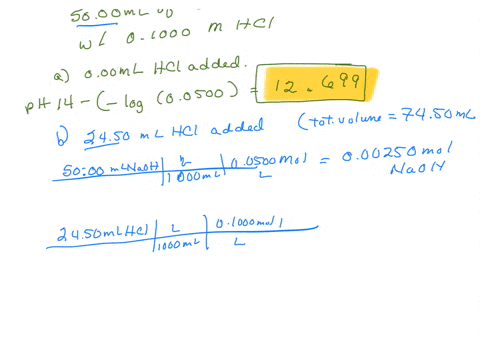 50.00mL
w/ 0.1000 m HCl
a) 0.00mL HCl added.
pH 14 - (- log (0.0500) = 12.699
b) 24.50 mL HCl added (tot. volume = 74.50mL
50.00 mL NaOH | L | 0.0500 mol = 0.00250 mol
1000mL | L NaOH
24.50mL HCl | L | 0.1000mol
1000mL | L